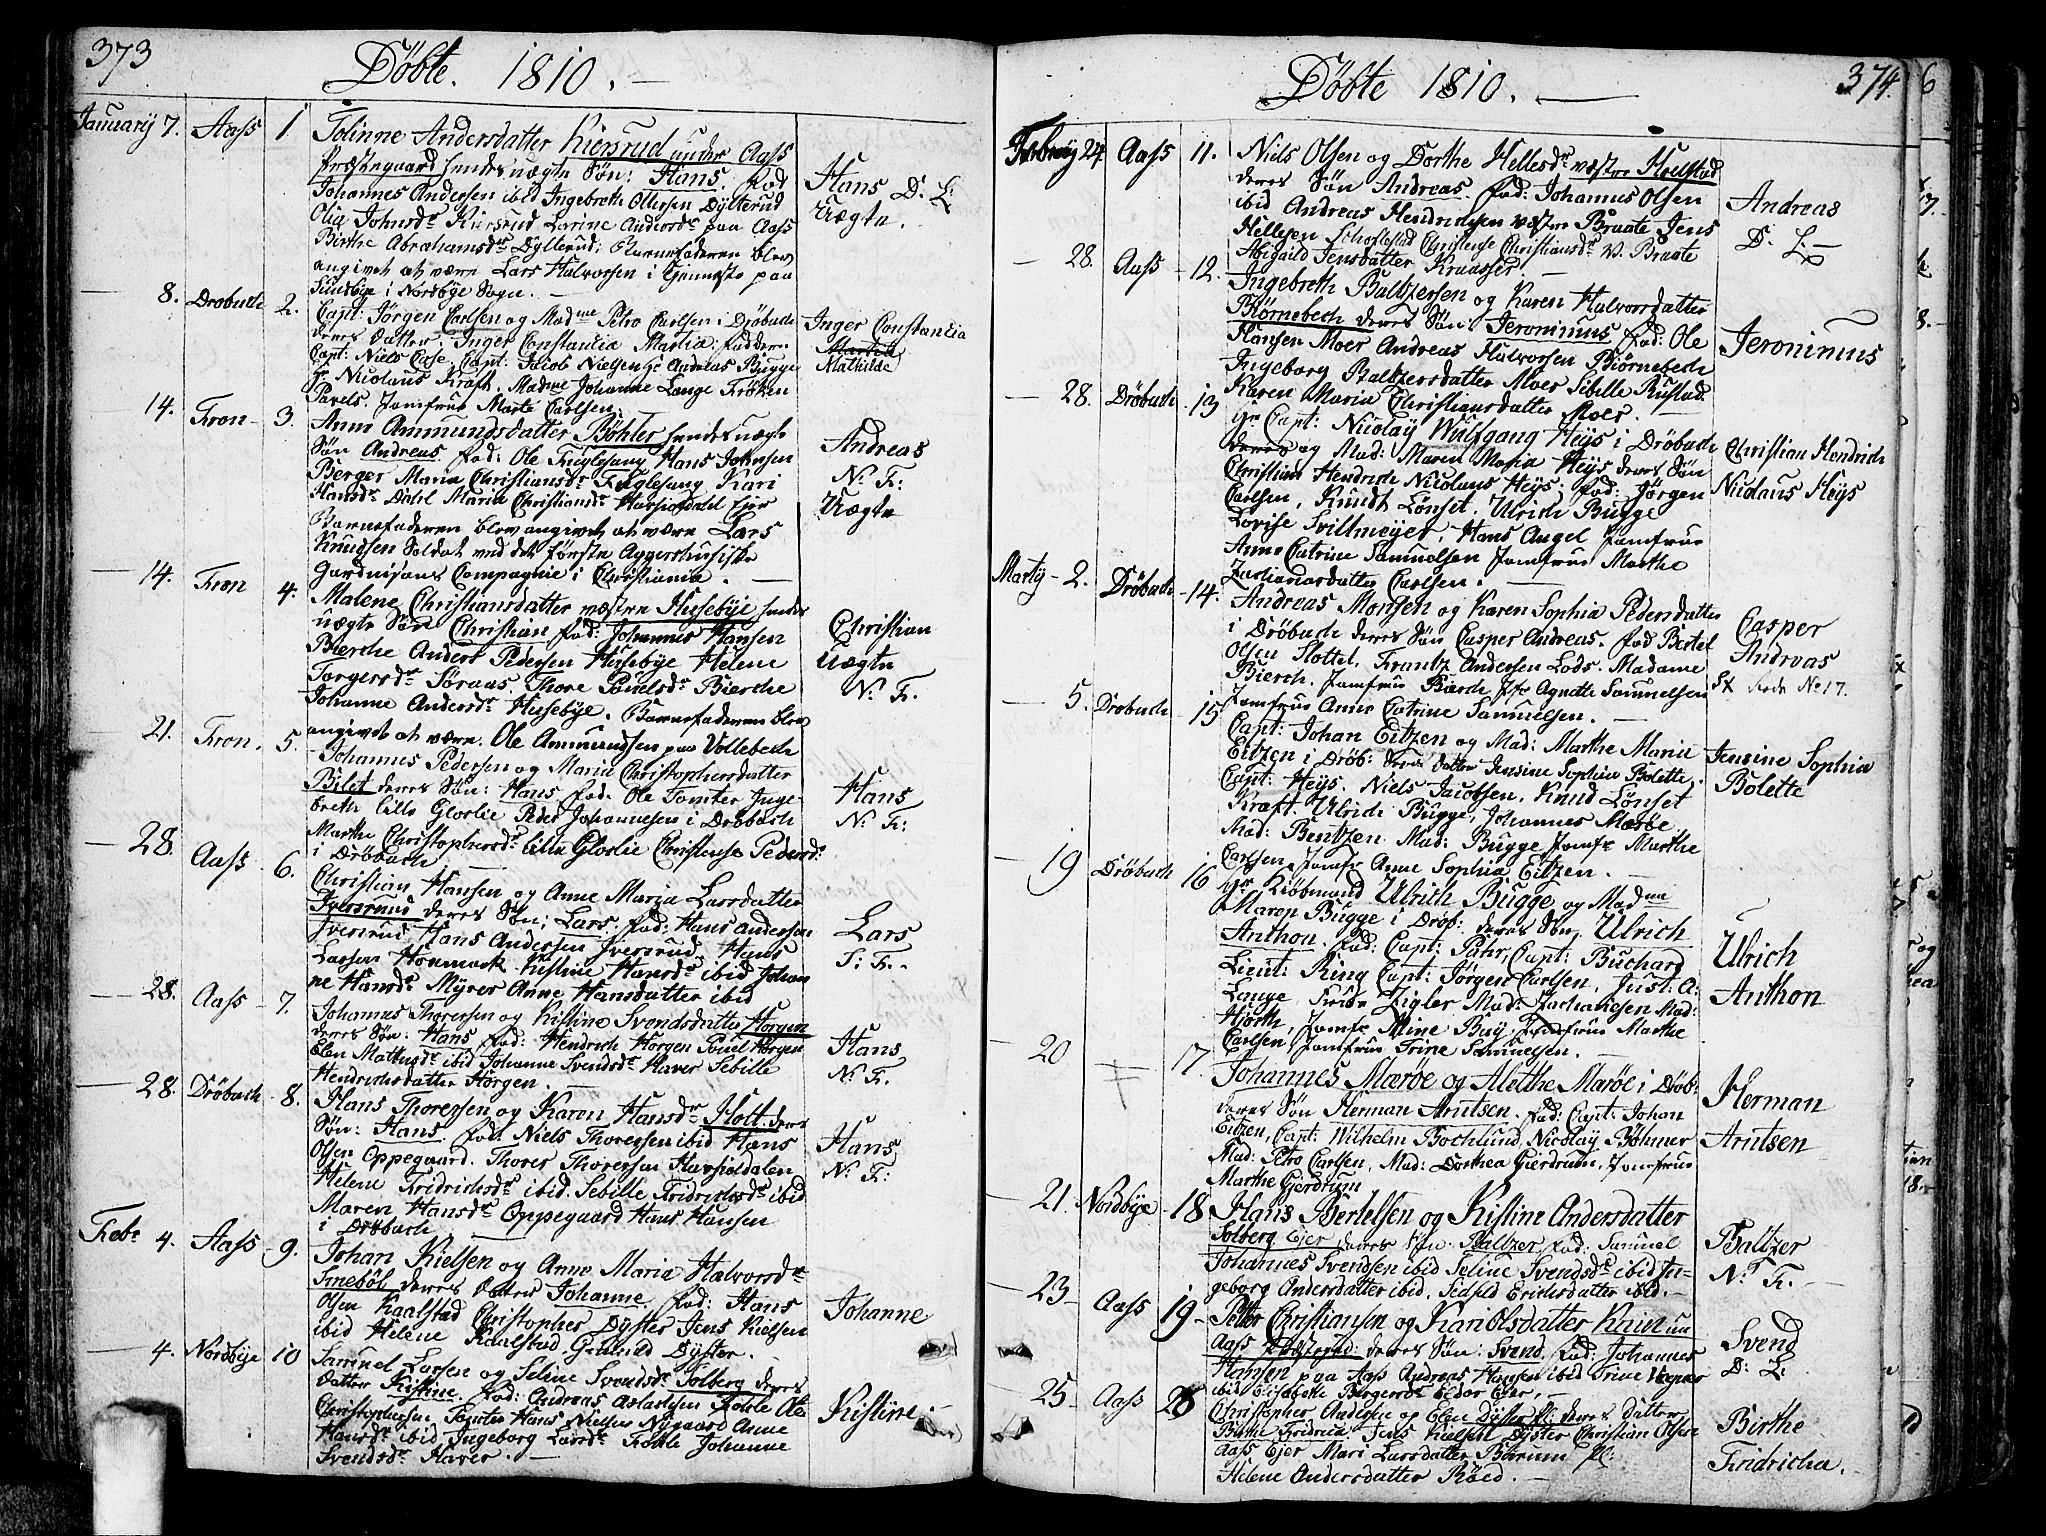 373
Döbte. 1810. —
January 7. Aass 1 Tolinne Andersdatter Kiersrud under Aass
Præstegaard hendes uægte Søn: Hans. Fad
Johannes Andersen ibid Ingebreth Olsen Dylterud
Olia Johnsdr Kiersrud Larine Andersdr paa Aass
Birthe Abrahamsdr Dyllerud; Barnefaderen blev
angivet at være Lars Halvorsen i Tjeneste paa
Sundbye i Nordbye Sogn. —
Hans D. L:
Uægte.
— 8. Drobach 2. Capt: Jörgen Carlsen og Madme Petro Carlsen i Dröbach
deres Datter: Inger Constancia Martia. Faddere
Capt: Niels Case. Capt: Jacob Nielsen Hr Andreas Bugge
Hr Nicolaus Kraft. Madme Johanne Lange Fröken
Pavels. Jomfrue Marte Carlsen.
Inger Constancia
Mathilde
14. Fron - 3. Anne Ammundsdatter Böhler hendes uægte
Søn Andreas. Fad: Ole Fuglesang Hans Johnsen
Berger Maria Christiansdr Fuglesang Kari
Hansdr Dahl Maria Christiansdr Havsiødalel Ejer
Barnefaderen blev angivet at være Lars
Knudsen Soldat ved det første Aggershusiske
Gardnisons Compagnie i Christiania. —
Andreas
N. F:
Uægte
— 14. Fron 4. Malene Christiansdatter væstre Husebye hendes
uægte Søn Christian Fad: Johannes Hansen
Bierche Anders Pedersen Husebye Helene
Torgersdr Söraas. Thore Povelsdr Bierche
Johanne Andersdr Husebye. Barnefaderen blev
angivet at være. Ole Ammundsen paa Vollebech
Christian
Uægte
N. F.
— 21. Fron. 5. Johannes Pedersen og Maria Christophersdatter
Bilet deres Søn: Hans Fad. Ole Tomter Inge-
breth Lille Glorlie Peder Johannesen i Dröbach
Marthe Christophersdr Lille Glorlie Christense Pedersdr
i Dröbach —
Hans
N. F:
— 28. Aass - 6. Christian Hansen og Anne Maria Larsdatter
Iversrud deres Søn: Lars. Fad: Hans Andersen
Iversrud Hans Andersen Iversrud. Hans
Larsen Honmark Kistine Hansdr ibid Johan
ne Hansdr Myrer Anne Hansdatter ibid
Lars
F: F.
— 28. Aass - 7. Johannes Thoresen og Kistine Svendsdatter Horgen
deres Søn: Hans Fad: Hendrich Horgen Povel Horgen
Elen Mattisdr ibid Johanne Svendsdr Haver Sebille
Hendrichsdatter Horgen. —
Hans
N. F.
— 28. Dröbach - 8. Hans Thoresen og Karen Hansdr Holt deres
Søn: Hans Fad. Niels Thoresen ibid Hans
Olsen Oppegaard. Thores Thoresen Havsiödalen
Helene Fridrichsdr ibid. Sebille Fridrichsdr ibid
Maren Hansdr Oppegaard Hans Hansen
i Dröbach
Hans
N. F:
Febr 4. Aass - 9. Johan Kielsen og Anne Maria Halvorsdr
Smeböl deres Datter Johanne. Fad: Hans
Olsen Kaalstad Christopher Dyster Jens Kielsen
ibid Helene Kaalstad Gunild Dyster. —
Johanne
— 4. Nordbye 10 Samuel Larsen og Seline Svendsdr Solberg deres
Datter Kistine. Fad: Andreas Aslachsen Fohle Ole
Christophersen Tomter Hans Nielsen Nygaard Anne
Hansdr ibid Ingeborg Larsdr Fohle Johanne
Svendsdr Haver. —
Kistine. —
374.
Döbte 1810. —
Febrüy 24 Aass 11. Niels Olsen og Dorthe Hellesdr væstre Hoelstad
deres Søn Andreas. Fad: Johannes Olsen
ibid Andreas Hendrichsen væstre Braate Jens
Hellesen Schoflestad Christense Christiansdr V. Braate
Abigaild Jensdatter Kraasser. —
Andreas
D. L. —
— 28. Aass - 12. Ingebreth Baltzersen og Karen Halvorsdatter
Biörnebech deres Søn: Jeronimus Fad: Ole
Hansen Moer Andreas Halvorsen Biörnebech
Ingeborg Baltzersdatter Moer Sibille Rustad
Karen Maria Christiansdatter Moer. —
Jeronimus
— 28. Dröbach - 13 Hr Capt: Nicolay Wulfgang Heys i Dröbach
og Mad: Maren Maria Heys deres Søn
Christian Hendrich Nicolaus Heys. Fad: Jörgen
Carlsen, Knudt Lönset. Ulrich Bugge
Lovise Svillmeyer, Hans Angel Jomfrue
Anne Catrine Samuelsen Jomfrue Marthe
Zachariasdatter Carlsen. —
Christian Hendrich
Nicolaus Heys
Marty - 2. Dröbach - 14. Andreas Monsen og Karen Sophia Pedersdatter
i Dröbach deres Søn Casper Andreas. Fad Bertel
Olsen Slottel. Frantz Andersen Lods. Madame
Bierch. Jomfrue Bierch Jfr Agnethe Samuelsen
Jomfrue Anne Catrine Samuelsen. —
Casper
Andreas
No 17.
— 5. Drobach - 15 Capt: Johan Eitzen og Mad: Marthe Maria
Eitzen i Dröb: deres Datter Jensine Sophia Bolette.
Capt: Heys. Niels Jacobsen. Knud Lönset
Kraft. Ulrich Bugge, Johannes Mærøe
Mad: Bentzen. Mad: Bugge Jomfr Marthe
Carlsen, Jomfr Anne Sophia Eitzen. —
Jensine Sophia
Bolette
— 19 Dröbach 16 Hr Kiöbmand Ulrich Bugge og Madme
Maren Bugge i Dröb: deres Søn, Ulrich
Anthon. Fad: Capt: Påhr, Capt: Buchard
Lieut: Ring Capt: Jörgen Carlsen, Just: A:
Lange Fride Zigler Mad: Zachariesen Mad:
Hjorth, Jomfr Mine Buy, Jomfrue Marthe
Carlsen, Jomfrue Trine Samuelsen. —
Ulrich
Anthon
— 20 — 17. Johannes Mærøe og Alethe Marøe i Dröb:
deres Søn Herman Arntsen. Fad: Capt: Johan
Eitzen, Capt: Wilhelm Bochlund, Nicolay Böhmer
Mad: Petro Carlsen, Mad: Dorthea Gierdrum, Jomfrue
Marthe Gjerdrum
Herman
Arntsen
— 21. Nordbye - 18 Hans Bertelsen og Kistine Andersdatter
Solberg Ejer deres Søn. Baltzer Fad: Samuel
Johannes Svendsen ibid Seline Svendsdr ibid In-
geborg Andersdatter ibid. Sidsld Erichsdatter ibid. —
Baltzer
N. F. —
— 23 — Aass 19 - Petter Christiansen og Kari Olsdatter Kaien un
Aass Præstegrd: deres Søn: Svend. Fad: Johannes
Hansen paa Aass Andreas Hansen ibid Trine Wagner
ibid Elisabeth Børgersdr Eldor Ejer. —
Svend
D: L.
— 25 — Aass 20 Christopher Andersen og Elen Dyster pl: deres Datter
Birthe Fridricha. Jens Kielsen Dyster Christian Olsen
Aass Ejer Mari Larsdatter Bärum pl:
Helene Andersdatter Röed. —
Birthe
Fridricha.